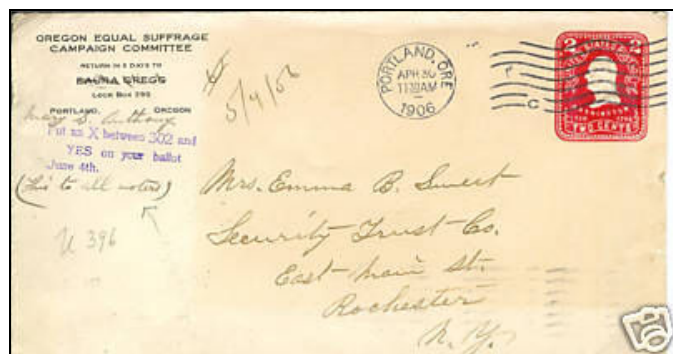 OREGON EQUAL SUFFRAGE
CAMPAIGN COMMITTEE
RETURN IN 5 DAYS TO
LAURA GREGG
LOCK BOX 295
PORTLAND, OREGON
Mary S. Anthony
Put an X between 302 and
YES on your ballot
June 4th.
(This to all voters)
U 396
5/4/06
PORTLAND, ORE
APR 30
1130AM
1906
2 2
UNITED STATES
WASHINGTON
TWO CENTS
Mrs. Emma B. Sweet
Security Trust Co.
East Main St.
Rochester
N.Y.